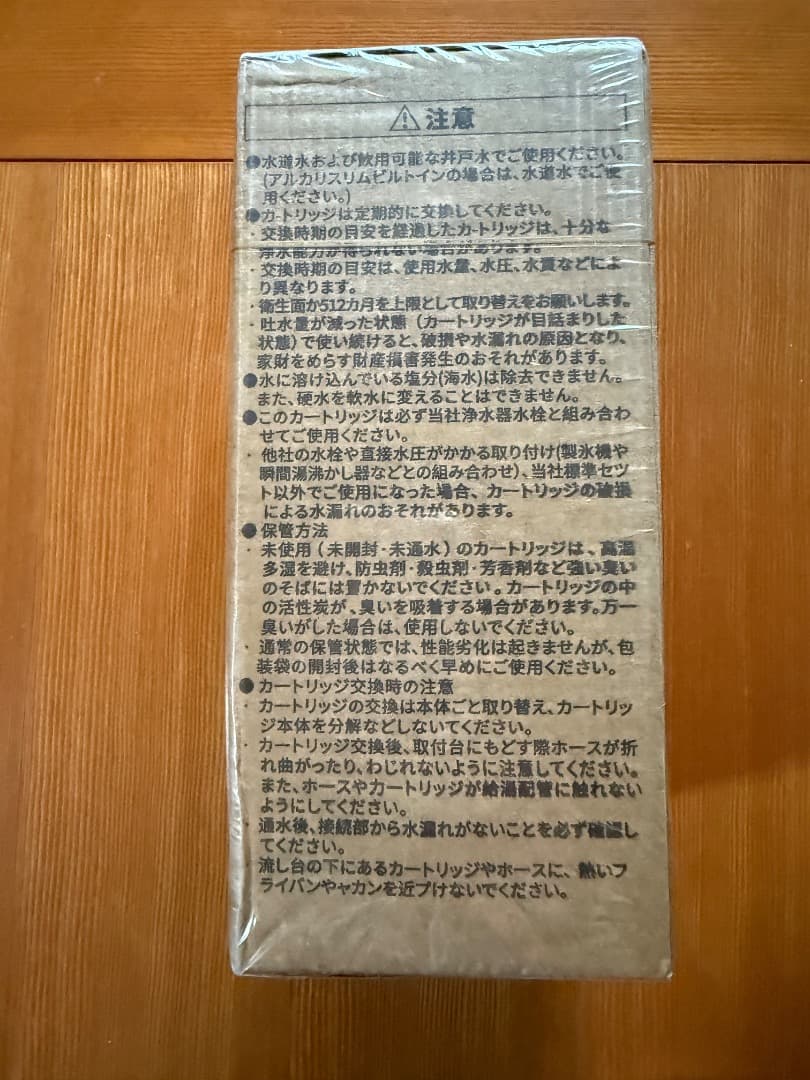 ⚠注意
●水道水および飲用可能な井戸水でご使用ください。
(アルカリスリムビルトインの場合は、水道水でご使
用ください。)
●カートリッジは定期的に交換してください。
・交換時期の目安を経過したカートリッジは、十分な
浄水能力が得られない場合があります。
・交換時期の目安は、使用水量、水圧、水質などによ
り異なります。
・衛生面か512カ月を上限として取り替えをお願いします。
・吐水量が減った状態（カートリッジが目話まりした
状態）で使い続けると、破損や水漏れの原因となり、
家財をめらす財産損害発生のおそれがあります。
●水に溶け込んでいる塩分(海水)は除去できません。
また、硬水を軟水に変えることはできません。
●このカートリッジは必ず当社浄水器水栓と組み合わ
せてご使用ください。
・他社の水栓や直接水圧がかかる取り付け(製氷機や
瞬間湯沸かし器などとの組み合わせ)、当社標準セツ
ト以外でご使用になった場合、カートリッジの破損
による水漏れのおそれがあります。
●保管方法
・未使用（未開封・未通水）のカートリッジは、高温
多湿を避け、防虫剤・殺虫剤・芳香剤など強い臭い
のそばには置かないでください。カートリッジの中
の活性炭が、臭いを吸着する場合があります。万一
臭いがした場合は、使用しないでください。
・通常の保管状態では、性能劣化は起きませんが、包
装袋の開封後はなるべく早めにご使用ください。
●カートリッジ交換時の注意
・カートリッジの交換は本体ごと取り替え、カートリッ
ジ本体を分解などしないてください。
・カートリッジ交換後、取付台にもどす際ホースが折
れ曲がったり、わじれないように注意してください。
また、ホースやカートリッジが給湯配管に触れない
ようにしてください。
・通水後、接続部から水漏れがないことを必ず確認し
てください。
・流し台の下にあるカートリッジやホースに、熱いフ
ライバンやャカンを近プけないでください。